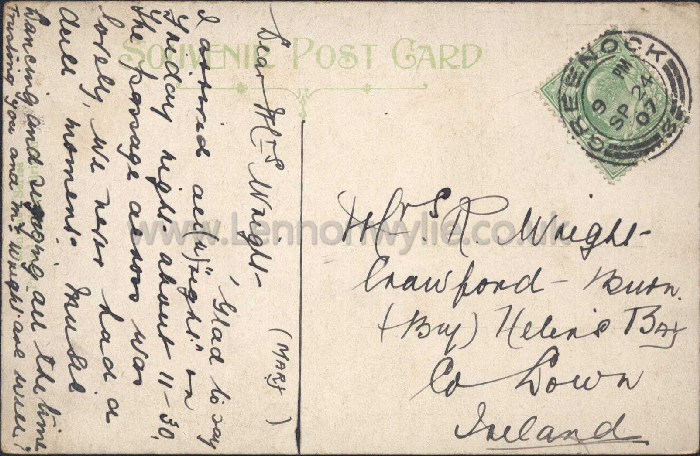 SOUVENIR POST CARD
Dear Mrs Wright
Glad to say
I arrived all "right" on
Friday night about 11-30,
the passage across was
lovely, we never had a
dull moment. Music
Dancing and singing all the time
Trusting you and Mr Wright are well.
(MARY)
GREENOCK
9 PM
SP 24
07
Mrs R Wright
Crawford-Burn.
(By) Helen's Bay
Co Down
Ireland
www.Lennonwylie.co.uk